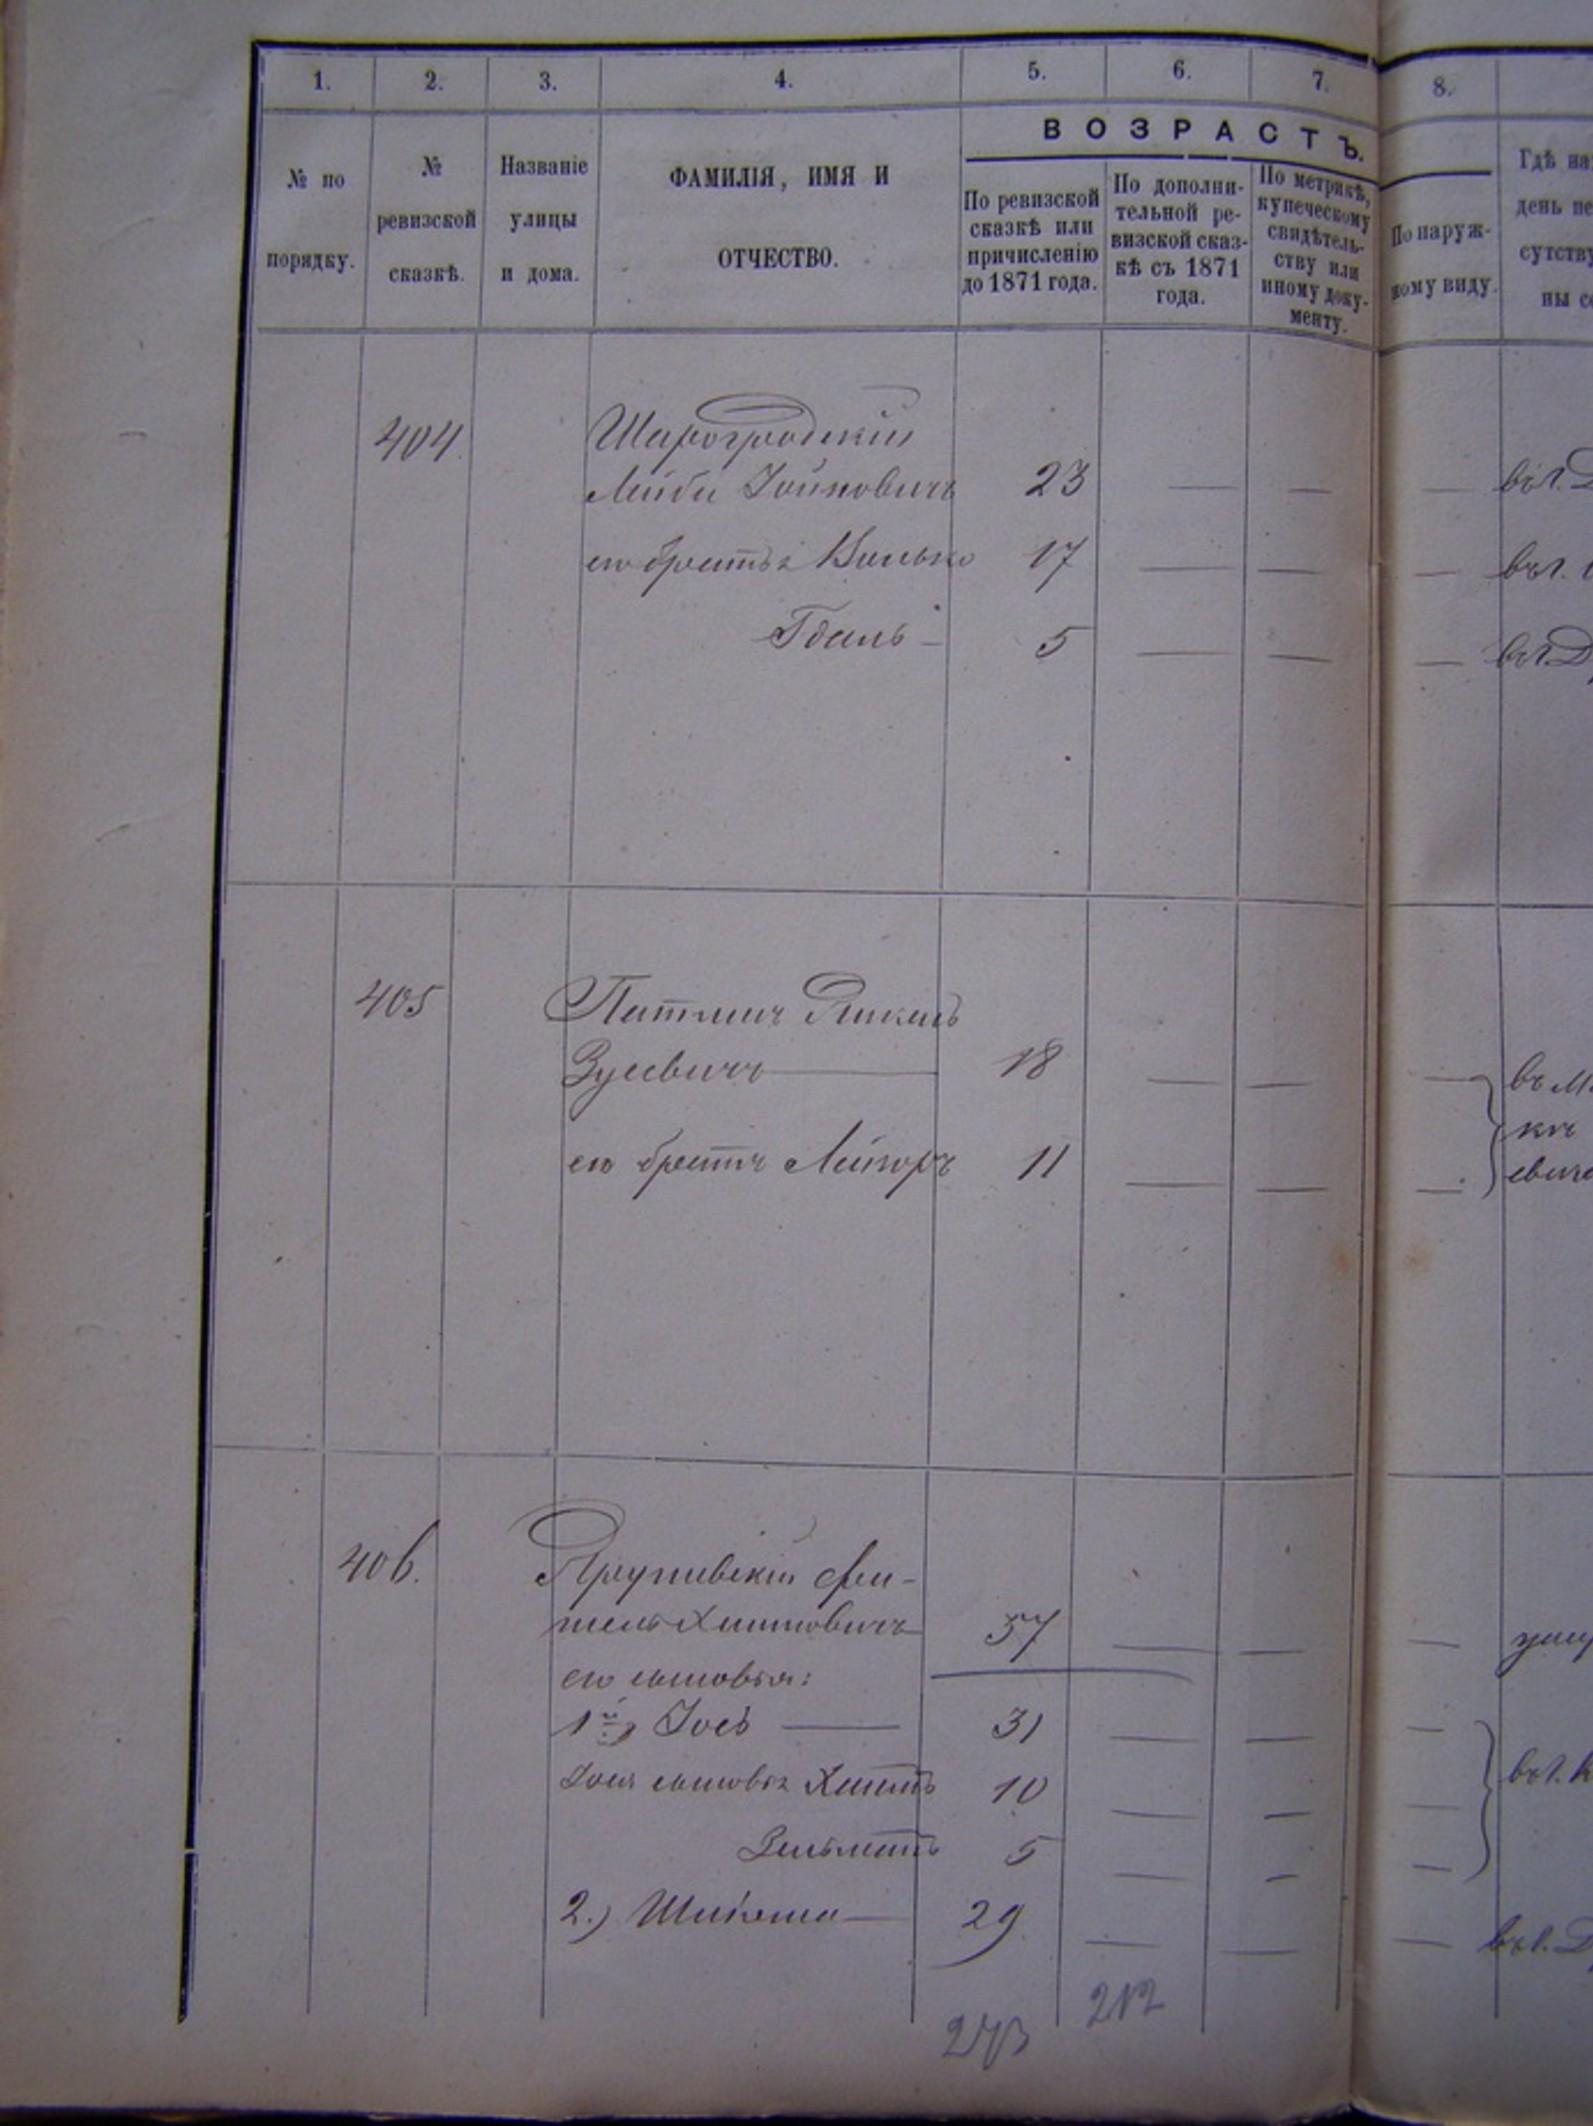 1. 2. 3. 4. 5. 6. 7. 8.
ВОЗРАСТЪ.
№ по порядку.
№ ревизской сказкѣ.
Названіе улицы и дома.
ФАМИЛІЯ, ИМЯ И
ОТЧЕСТВО.
По ревизской
сказкѣ или
причисленію
до 1871 года.
По дополни-
тельной ре-
визской сказ-
кѣ съ 1871
года.
По метрикѣ,
купеческому
свидѣтель-
ству или
иному доку-
менту.
По наруж-
ному виду.
Гдѣ на
день пе
сутству
ны се
404. Шарогродскій
Лейба Іойновичъ 23 — — — въ г. Д
его братья Волько 17 — — — въ г.
Гдаль — 5 — — — въ г. Д
405 Питмич
Зусевичъ — 18 — — — въ м.
его братъ Лейзоръ 11 — — —
406.
37 — — — умер
его сыновья:
1й, Іось — 31 — — —
Іося сыновья Хаимъ 10 — — — въ г. К
Зельманъ 5 — — —
2.) 29 — — — въ г. Д
273 212